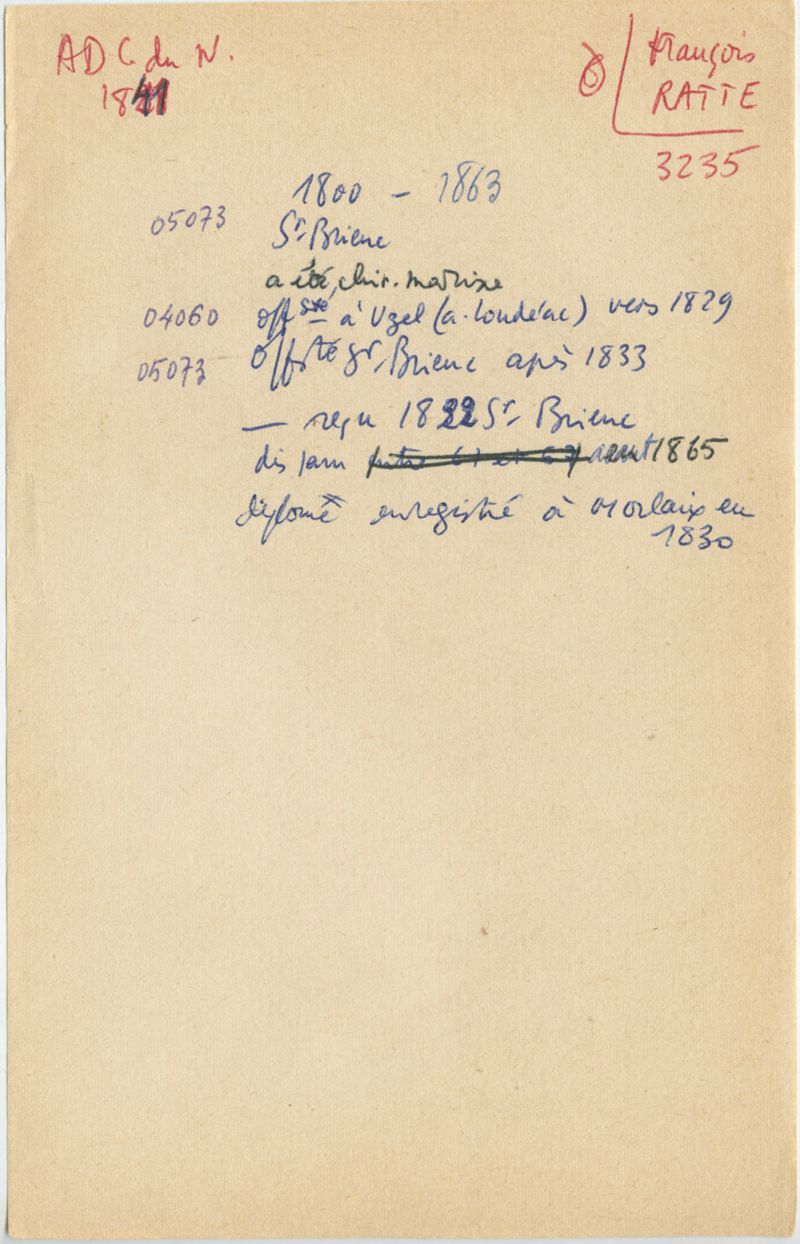 AD C. du N.
1841
François
RATTE
3235
1800 - 1863
05073
St. Brieuc
a été chir. marine
04060 off sté à Uzel (a. Loudéac) vers 1829
05073 Off sté St. Brieuc après 1833
— reçu 1822 St. Brieuc
disparu entre 61 et 67 avant 1865
diplome enregistré à Morlaix en
1830